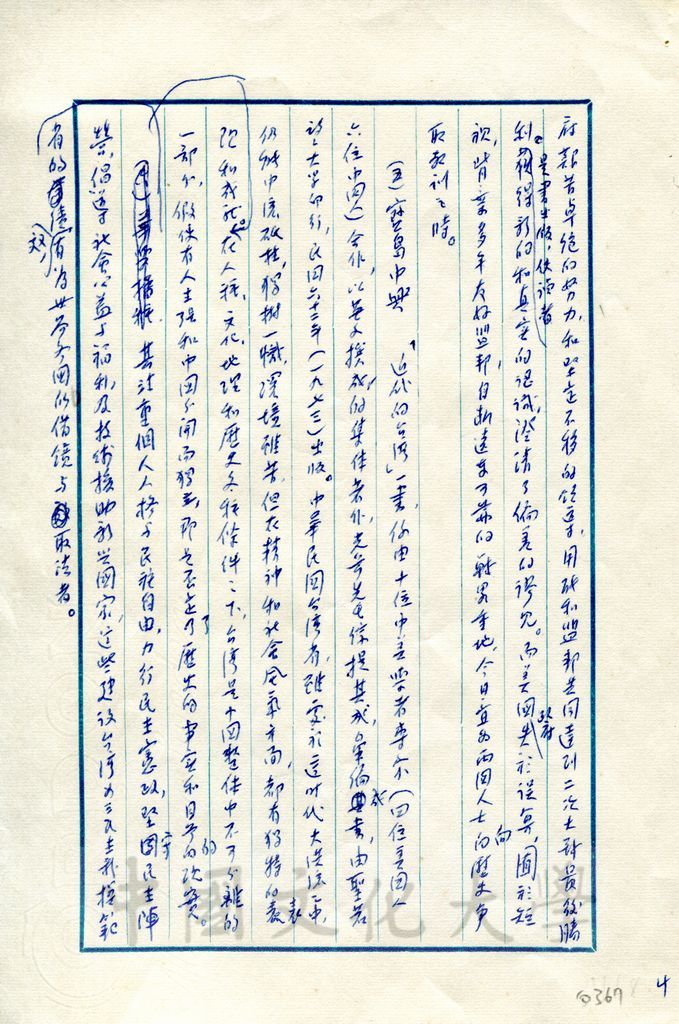 府艱苦卓絕的努力，和堅定不移的領導，用能和盟邦共同達到二次大戰最後勝
利。是書出版，使讀者獲得新的和真實的認識，澄清了偏差的謬見。而美國政府失於誤算，囿於短
視，背棄多年友好盟邦，自斷遠東可靠的戰畧重地，今日宜為兩國人士向的歷史爭
取教訓之時。
(五)寶島中興 「近代的台灣」一書，係由十位中美學者專家(四位美國人
六位中國人)合作，以英文撰成的集体著作，先生綜提其成，彙編成書，由聖若
望大學印行，民國六十二年(一九七三)出版。中華民國台灣省，雖處於這時代大洪流之中，
仍然中流砥柱，獨樹一幟，環境雖苦，但在精神和社會風氣方面，都有獨特的表
現和成就。在人種，文化，地理和歷史各種條件之下，台灣是中國整体中不可分離的
一部分，假使有人主張和中國分開而獨立，那是否定了歷史的事實和目前的現實。
其注重個人人格与民族自由，力行民主憲政，堅固民主陣
營，倡導社會公益与福利，及技術援助新興國家，這些建設台灣為三民主義模範
省的政績，有為世界各國所借鏡与取法者。
中國文化大學
4
369